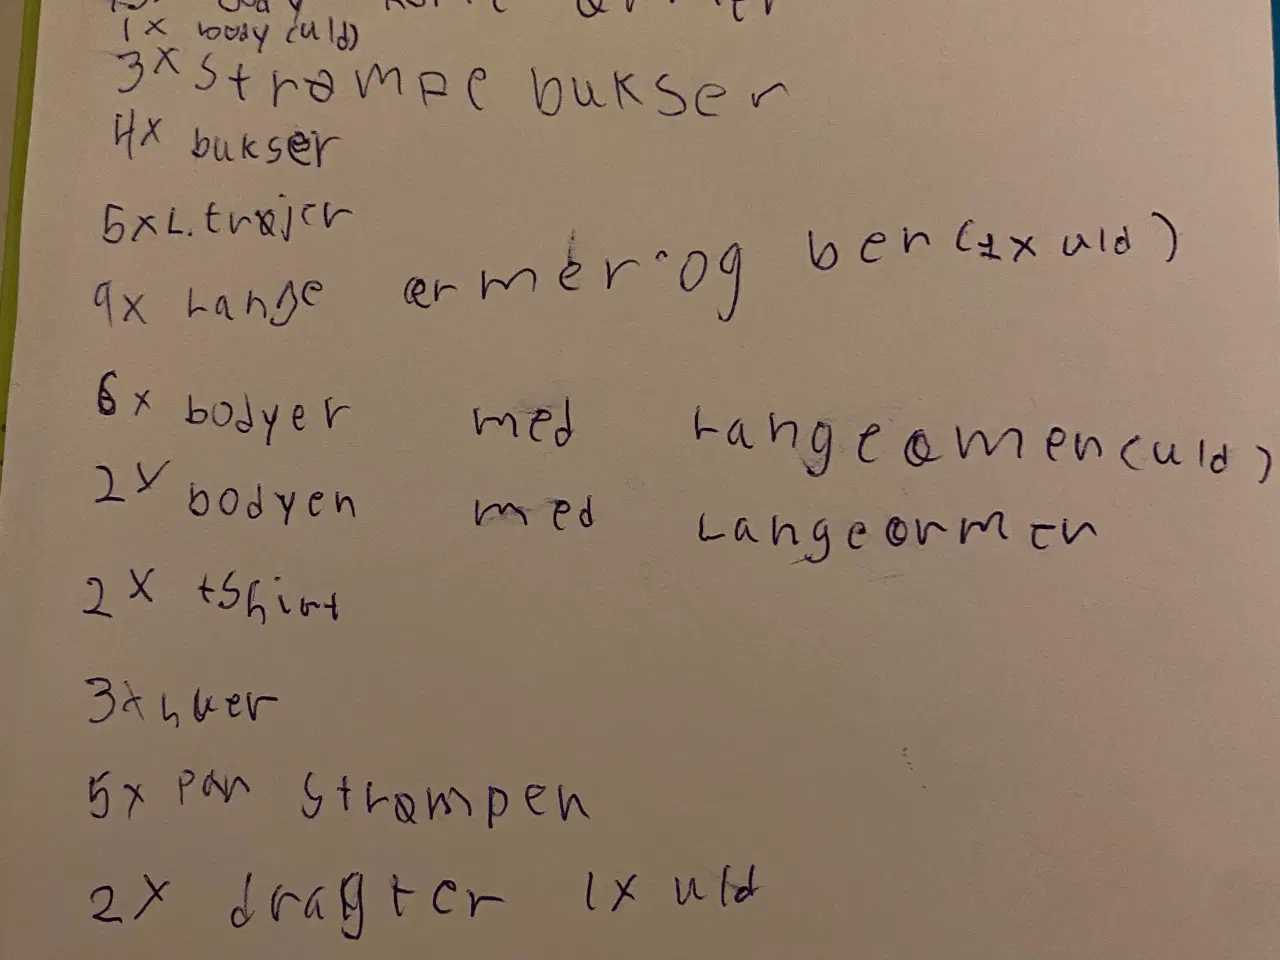 body
1x body (uld)
3x strømpe bukser
4x bukser
5x L. trøjer
9x Lange ærmer og ben (1x uld)
6x bodyer med Langeæmer (uld)
2x bodyer med Langeærmer
2x tshirt
3x huer
5x par strømper
2x dragter 1x uld